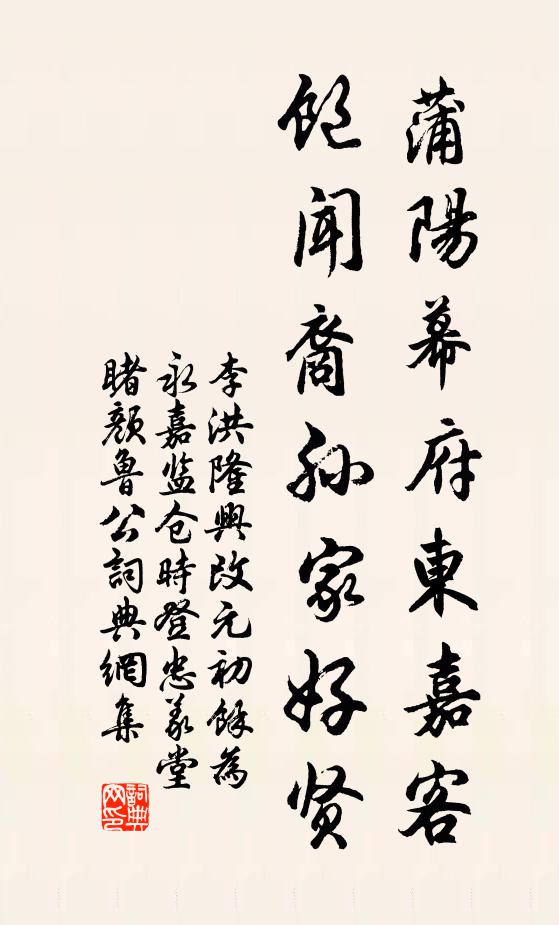 蒲陽幕府東嘉客
飽聞裔孫家好贤
李洪隆興改元初餘為
永嘉监仓時登忠义堂
睹顏魯公詞典網集
詞典
网印